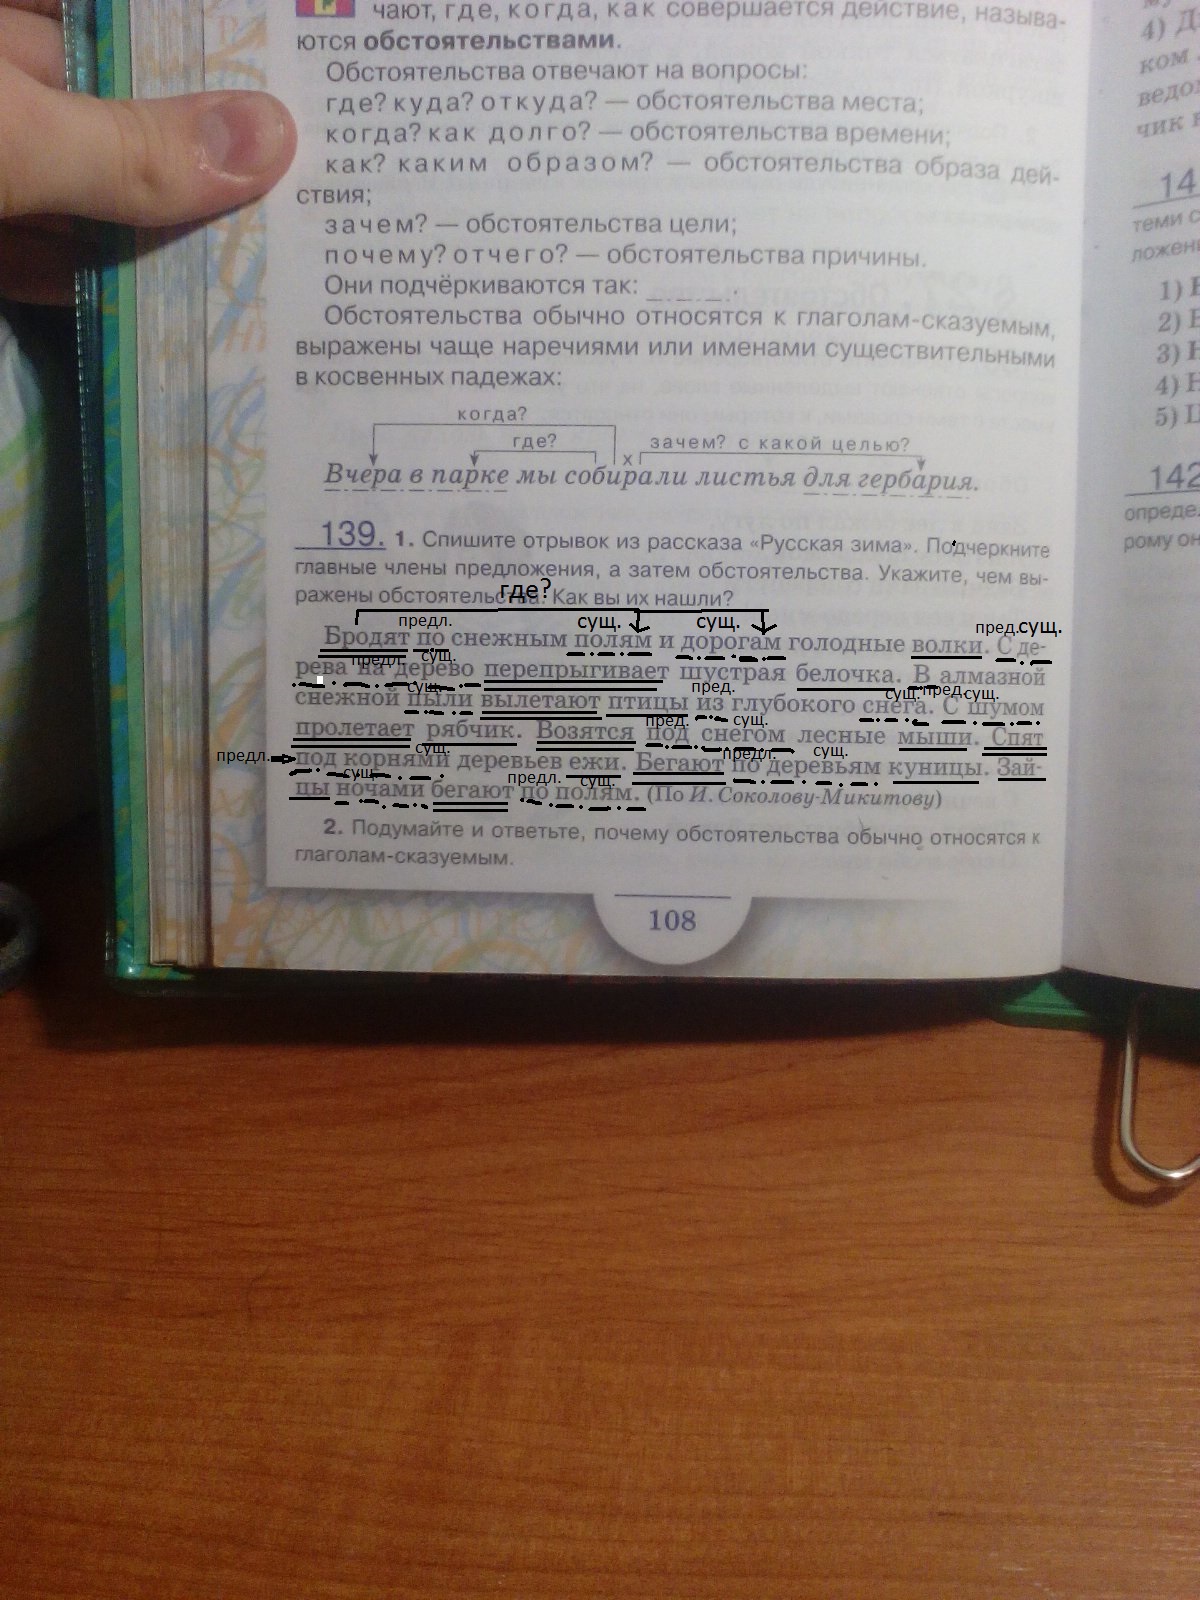 чают, где, когда, как совершается действие, называ-
ются обстоятельствами.
Обстоятельства отвечают на вопросы:
где? куда? откуда? — обстоятельства места;
когда? как долго? — обстоятельства времени;
как? каким образом? — обстоятельства образа дей-
ствия;
зачем? — обстоятельства цели;
почему? отчего? — обстоятельства причины.
Они подчёркиваются так:
Обстоятельства обычно относятся к глаголам-сказуемым,
выражены чаще наречиями или именами существительными
в косвенных падежах:
когда?
где? зачем? с какой целью?
х
Вчера в парке мы собирали листья для гербария.
139. 1. Спишите отрывок из рассказа «Русская зима». Подчеркните
главные члены предложения, а затем обстоятельства. Укажите, чем вы-
ражены обстоятельства. Как вы их нашли?
где?
предл. сущ. сущ. пред. сущ.
Бродят по снежным полям и дорогам голодные волки. С де-
предл. сущ.
рева на дерево перепрыгивает шустрая белочка. В алмазной
сущ. пред. сущ. пред. сущ.
снежной пыли вылетают птицы из глубокого снега. С шумом
пред. сущ.
пролетает рябчик. Возятся под снегом лесные мыши. Спят
предл. сущ. предл. сущ.
под корнями деревьев ежи. Бегают по деревьям куницы. Зай-
сущ. предл. сущ.
цы ночами бегают по полям. (По И. Соколову-Микитову)
2. Подумайте и ответьте, почему обстоятельства обычно относятся к
глаголам-сказуемым.
108
4) Д
ком
ведо
чик
14
теми с
ложен
1)
2)
3)
4)
5)
142
опреде
рому он